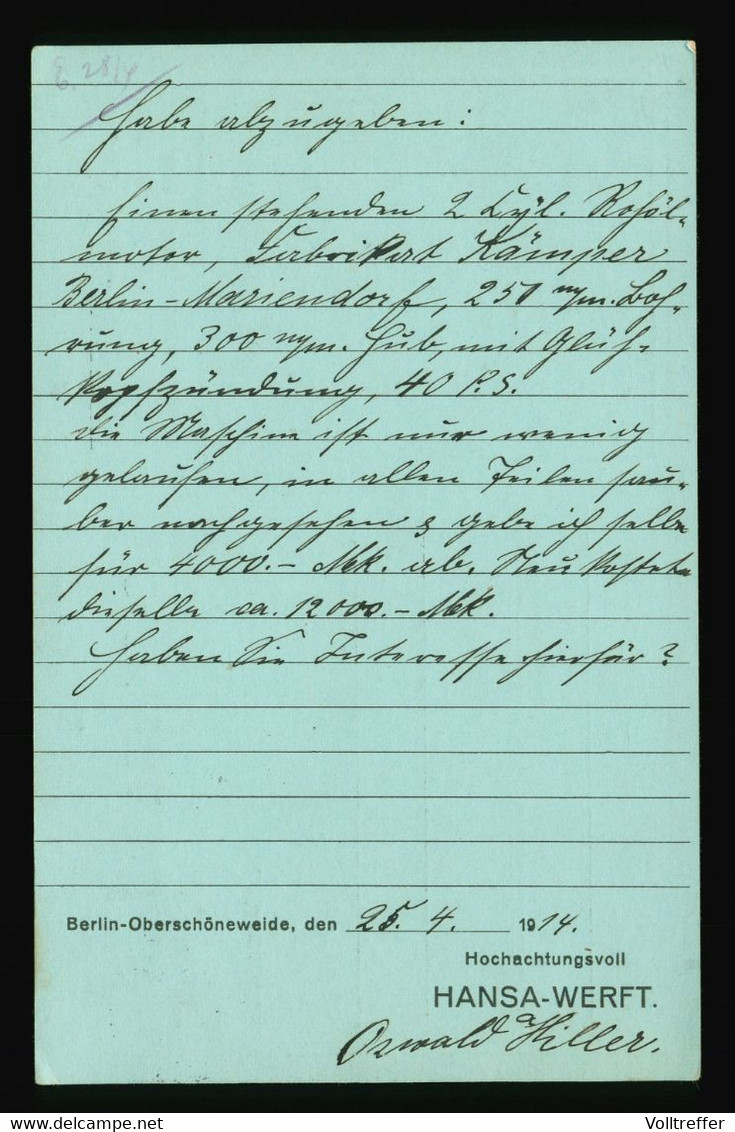 E. 28/4
Habe abzugeben:
Einen stehenden 2 Cyl. Rohöl-
motor, Fabrikat Kämper
Berlin-Mariendorf, 250 m/m. Boh-
rung, 300 m/m. Hub, mit Glüh-
kopfzündung, 40 P.S.
Die Maschine ist nur wenig
gelaufen, in allen Teilen sau-
ber nachgesehen & gebe ich selbe
für 4000.- Mk. ab. Neu kostete
dieselbe ca. 12000.- Mk.
Haben Sie Interesse hierfür?
Berlin-Oberschöneweide, den 25. 4. 1914.
Hochachtungsvoll
HANSA-WERFT.
Oswald Hiller.
delcampe.net
Volltreffer